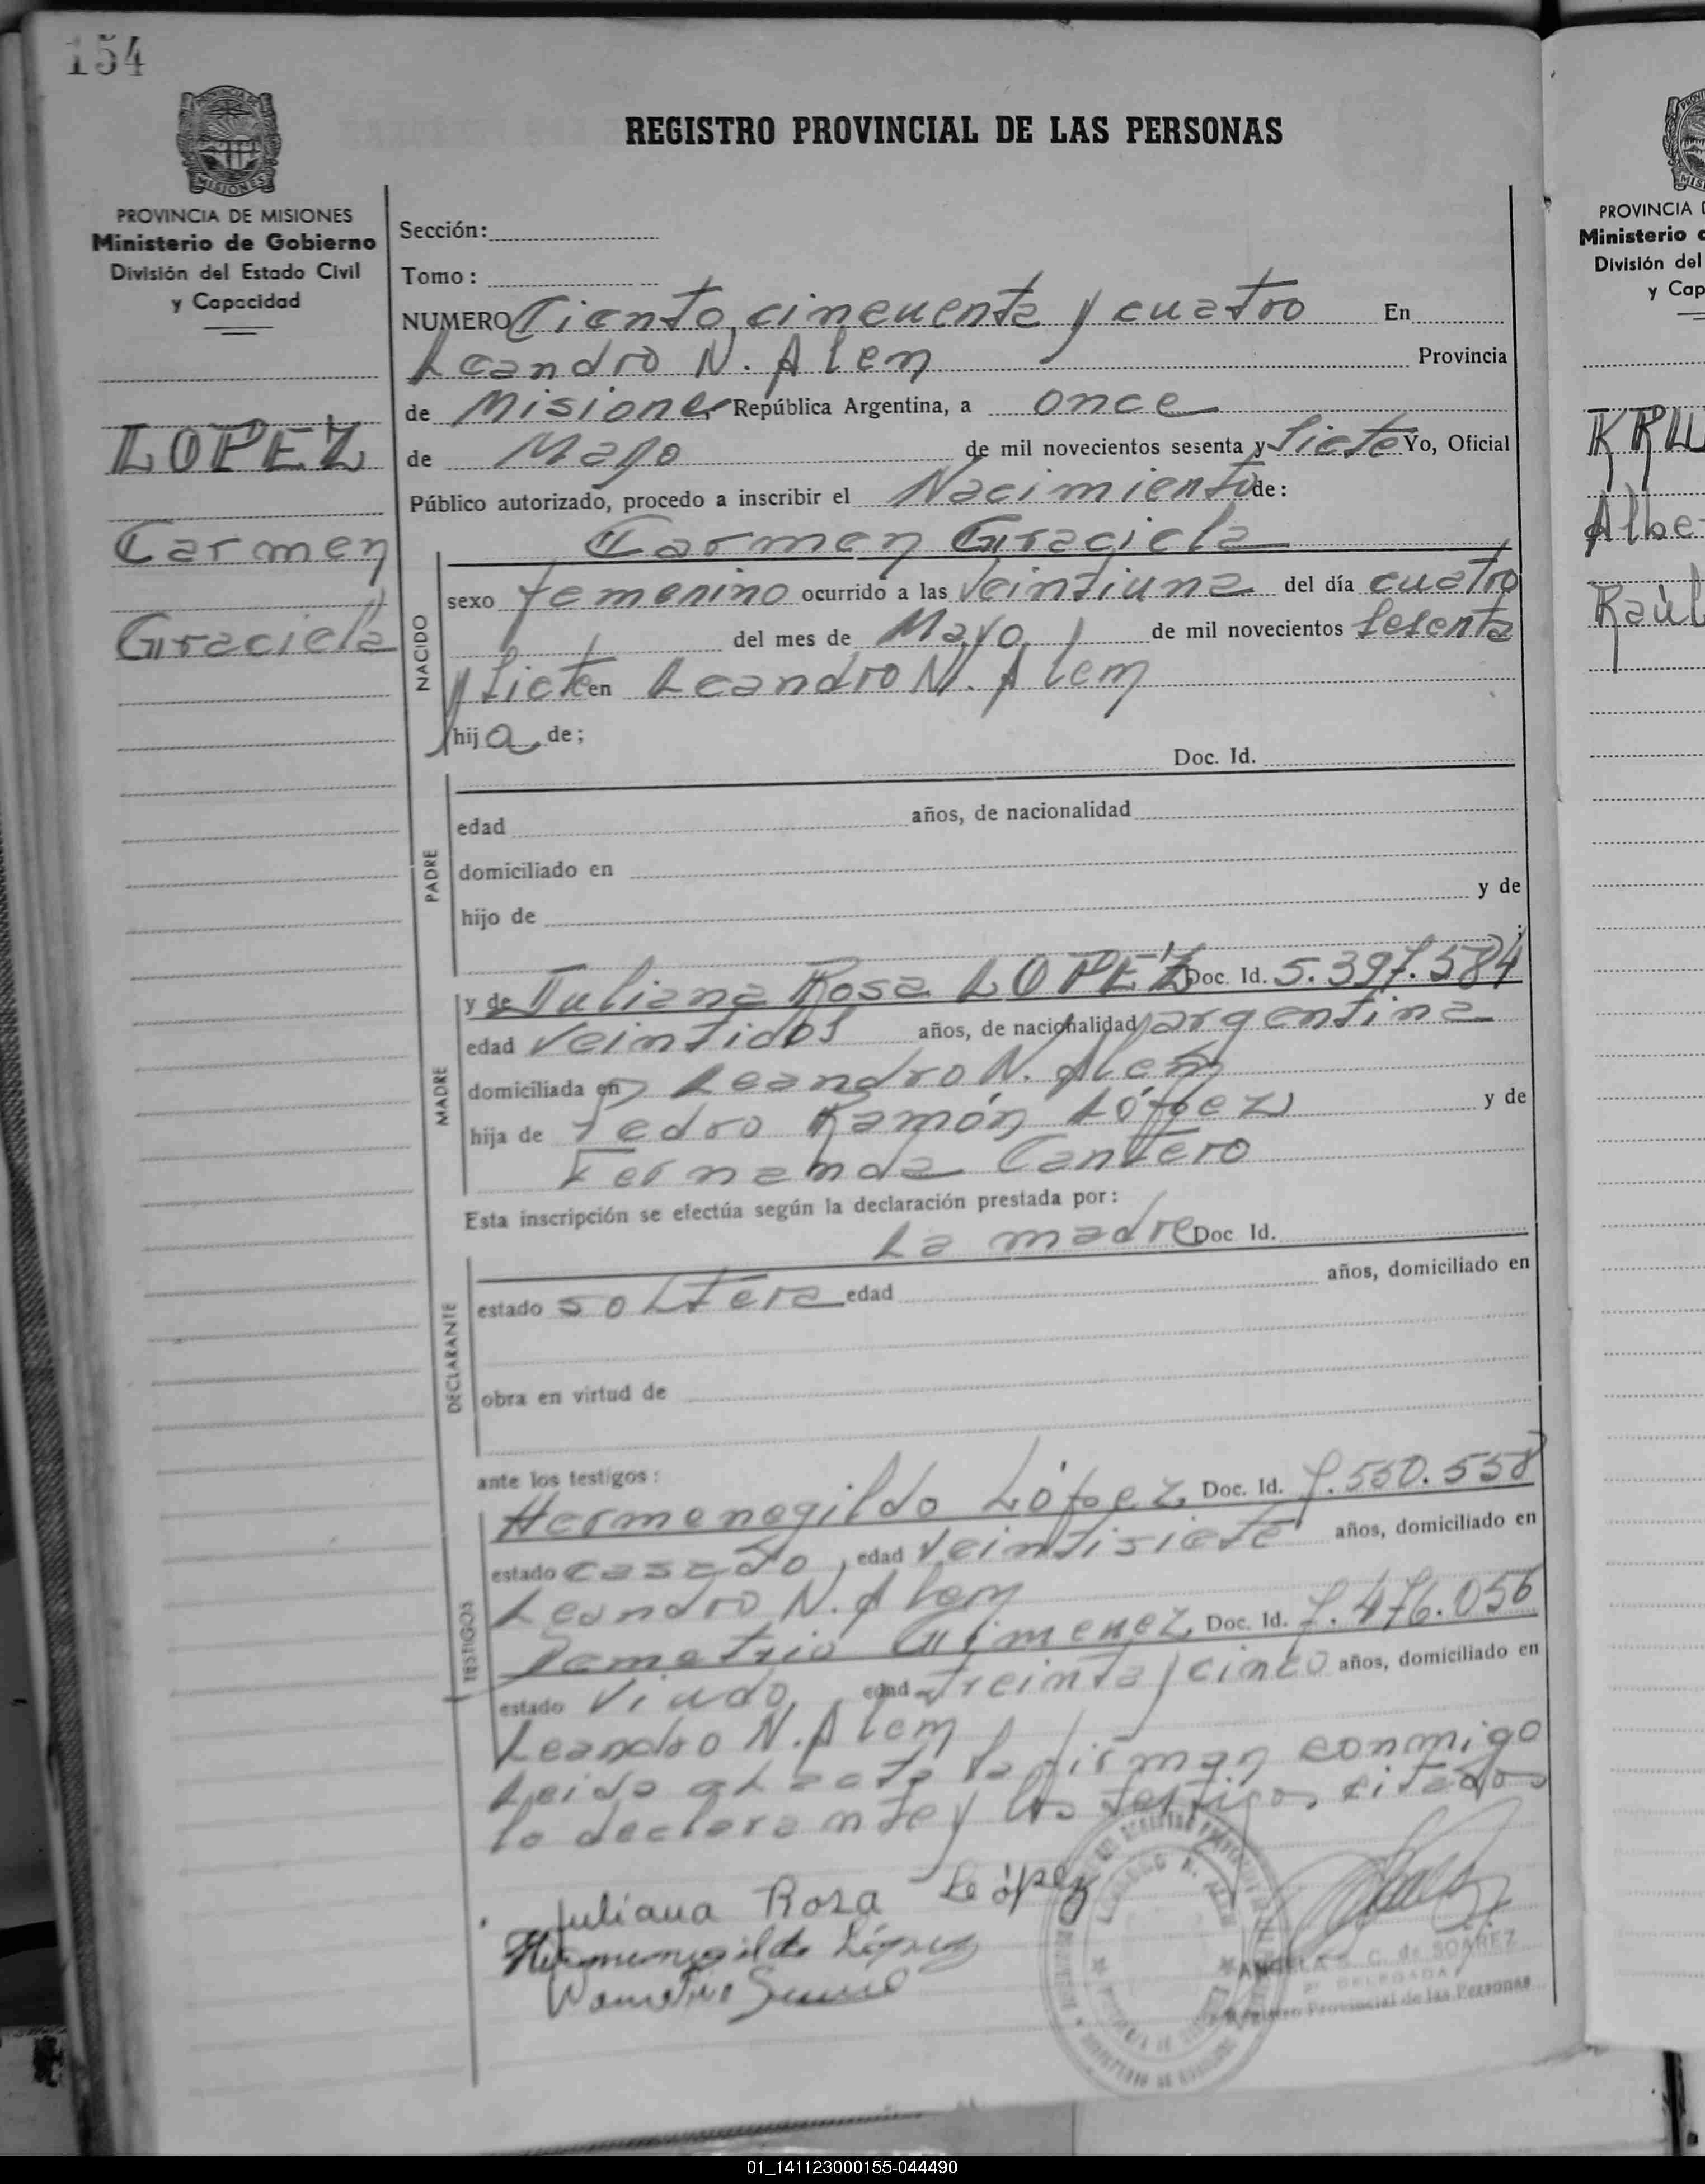 154
PROVINCIA DE MISIONES
Ministerio de Gobierno
División del Estado Civil
y Capacidad
LOPEZ
Carmen
Graciela
REGISTRO PROVINCIAL DE LAS PERSONAS
Sección:
Tomo:
NUMERO Ciento cincuenta y cuatro En
Leandro N. Alem Provincia
de Misiones República Argentina, a once
de Mayo de mil novecientos sesenta y siete Yo, Oficial
Público autorizado, procedo a inscribir el Nacimiento de:
Carmen Graciela
NACIDO
sexo femenino ocurrido a las veintiuna del día cuatro
del mes de Mayo de mil novecientos sesenta
y siete en Leandro N. Alem
hija de;
Doc. Id.
PADRE
edad años, de nacionalidad
domiciliado en
hijo de y de
;
MADRE
y de Juliana Rosa LOPEZ Doc. Id. 5.397.584
edad veintidos años, de nacionalidad argentina
domiciliada en Leandro N. Alem
hija de Pedro Ramón López y de
Fernanda Cantero
Esta inscripción se efectúa según la declaración prestada por:
La madre Doc. Id.
DECLARANTE
estado soltera edad años, domiciliado en
obra en virtud de
ante los testigos:
TESTIGOS
Hermenegildo López Doc. Id. 7.550.558
estado casado, edad veintisiete años, domiciliado en
Leandro N. Alem
Demetrio Gimenez Doc. Id. 7.476.056
estado viudo, edad treinta y cinco años, domiciliado en
Leandro N. Alem
Leida el acta la firman conmigo
la declarante y los testigos citados
Juliana Rosa López
Hermenegildo López
ANGELA S. C. de SOAREZ
DELEGADA
Registro Provincial de las Personas
PROVINCIA D
Ministerio d
División del
y Cap
KRU
Albe
Raúl
01_141123000155-044490